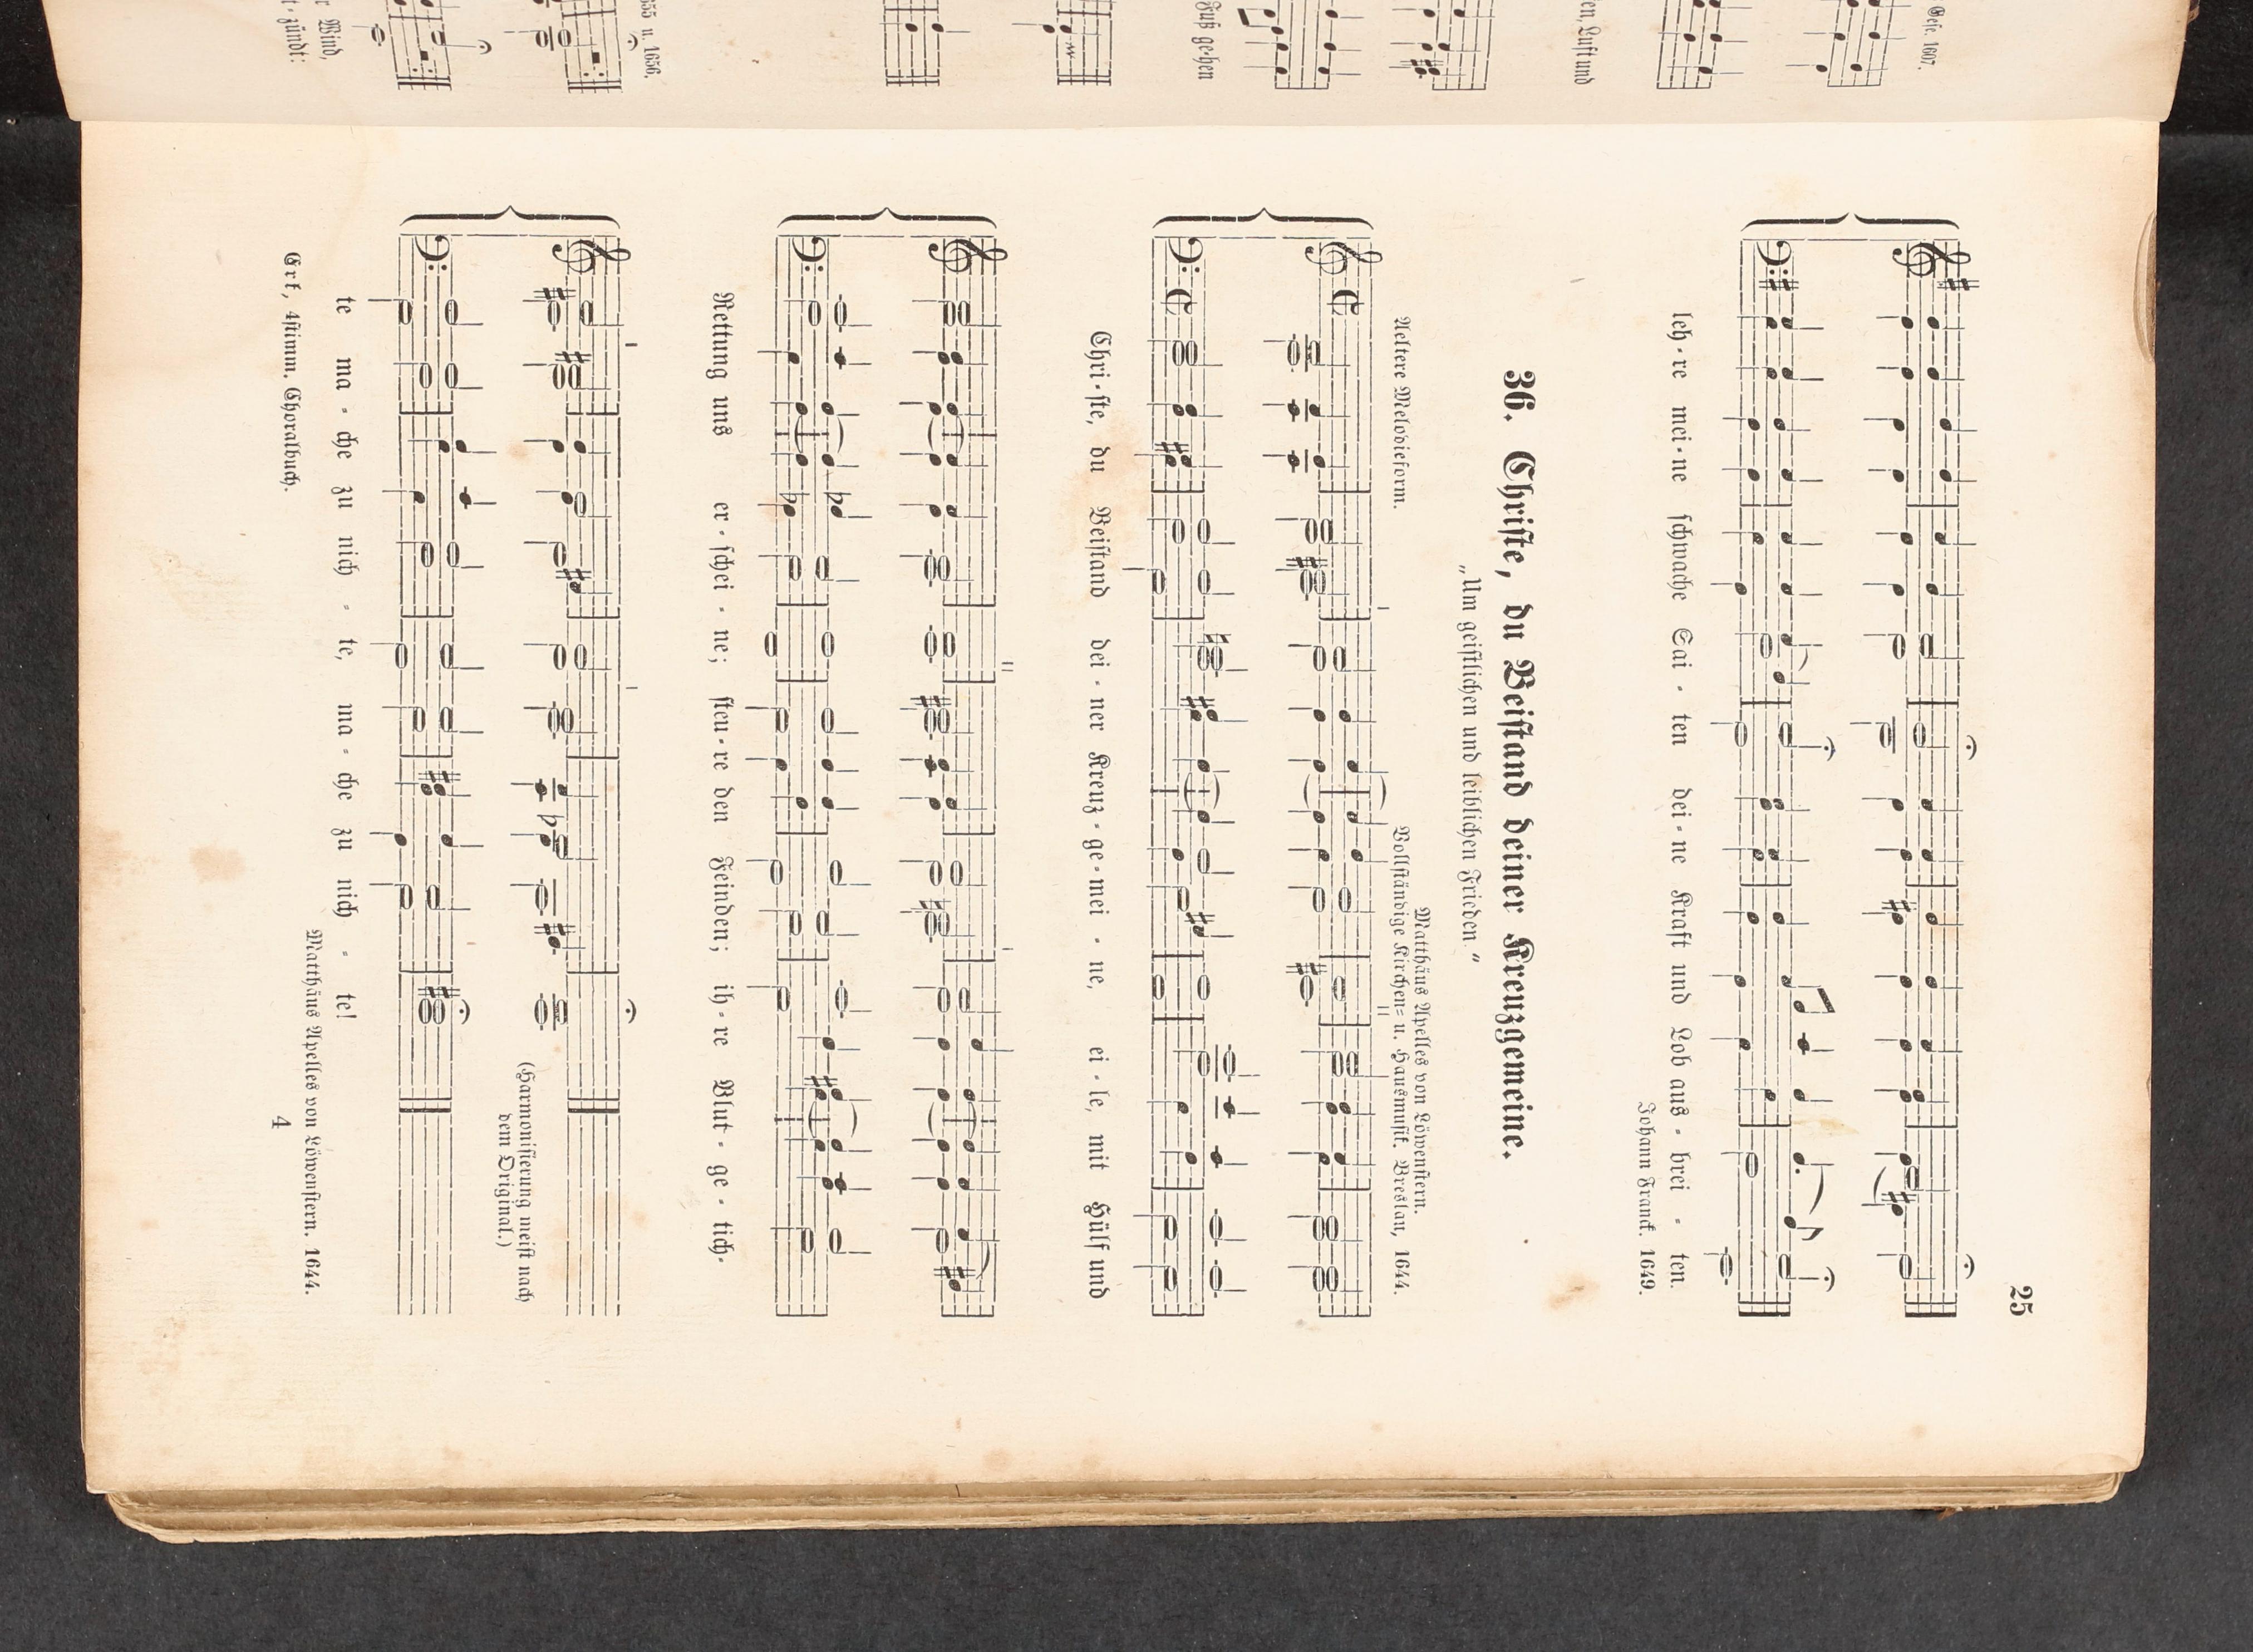 25
leh-re mei-ne schwache Sai-ten dei-ne Kraft und Lob aus-brei-ten.
Johann Franck. 1649.
36. Christe, du Beistand deiner Kreuzgemeine.
„Um geistlichen und leiblichen Frieden.“
Matthäus Apelles von Löwenstern.
Aeltere Melodieform. Vollständige Kirchen- u. Hausmusik. Breslau, 1644.
Chri-ste, du Beistand dei-ner Kreuz-ge-mei-ne, ei-le, mit Hülf und
Rettung uns er-schei-ne; steu-re den Feinden; ih-re Blut-ge-tich-
(Harmonisierung meist nach
dem Original.)
te ma-che zu nich-te, ma-che zu nich-te!
Matthäus Apelles von Löwenstern. 1644.
Erk, 4stimm. Choralbuch.
4
Gese. 1607.
en, Luft und
Fuß ge-hen
1656.
r Wind,
t-zündt: